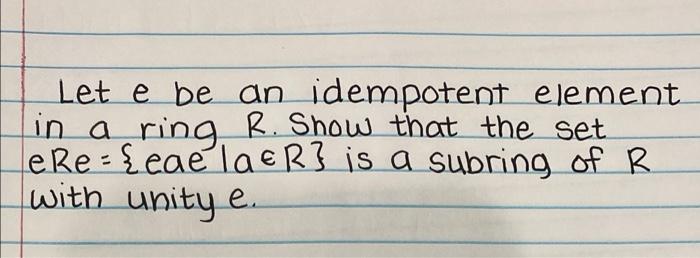 Let e be an idempotent element
in a ring R. Show that the set
eRe = {eae | a ∈ R} is a subring of R
with unity e.